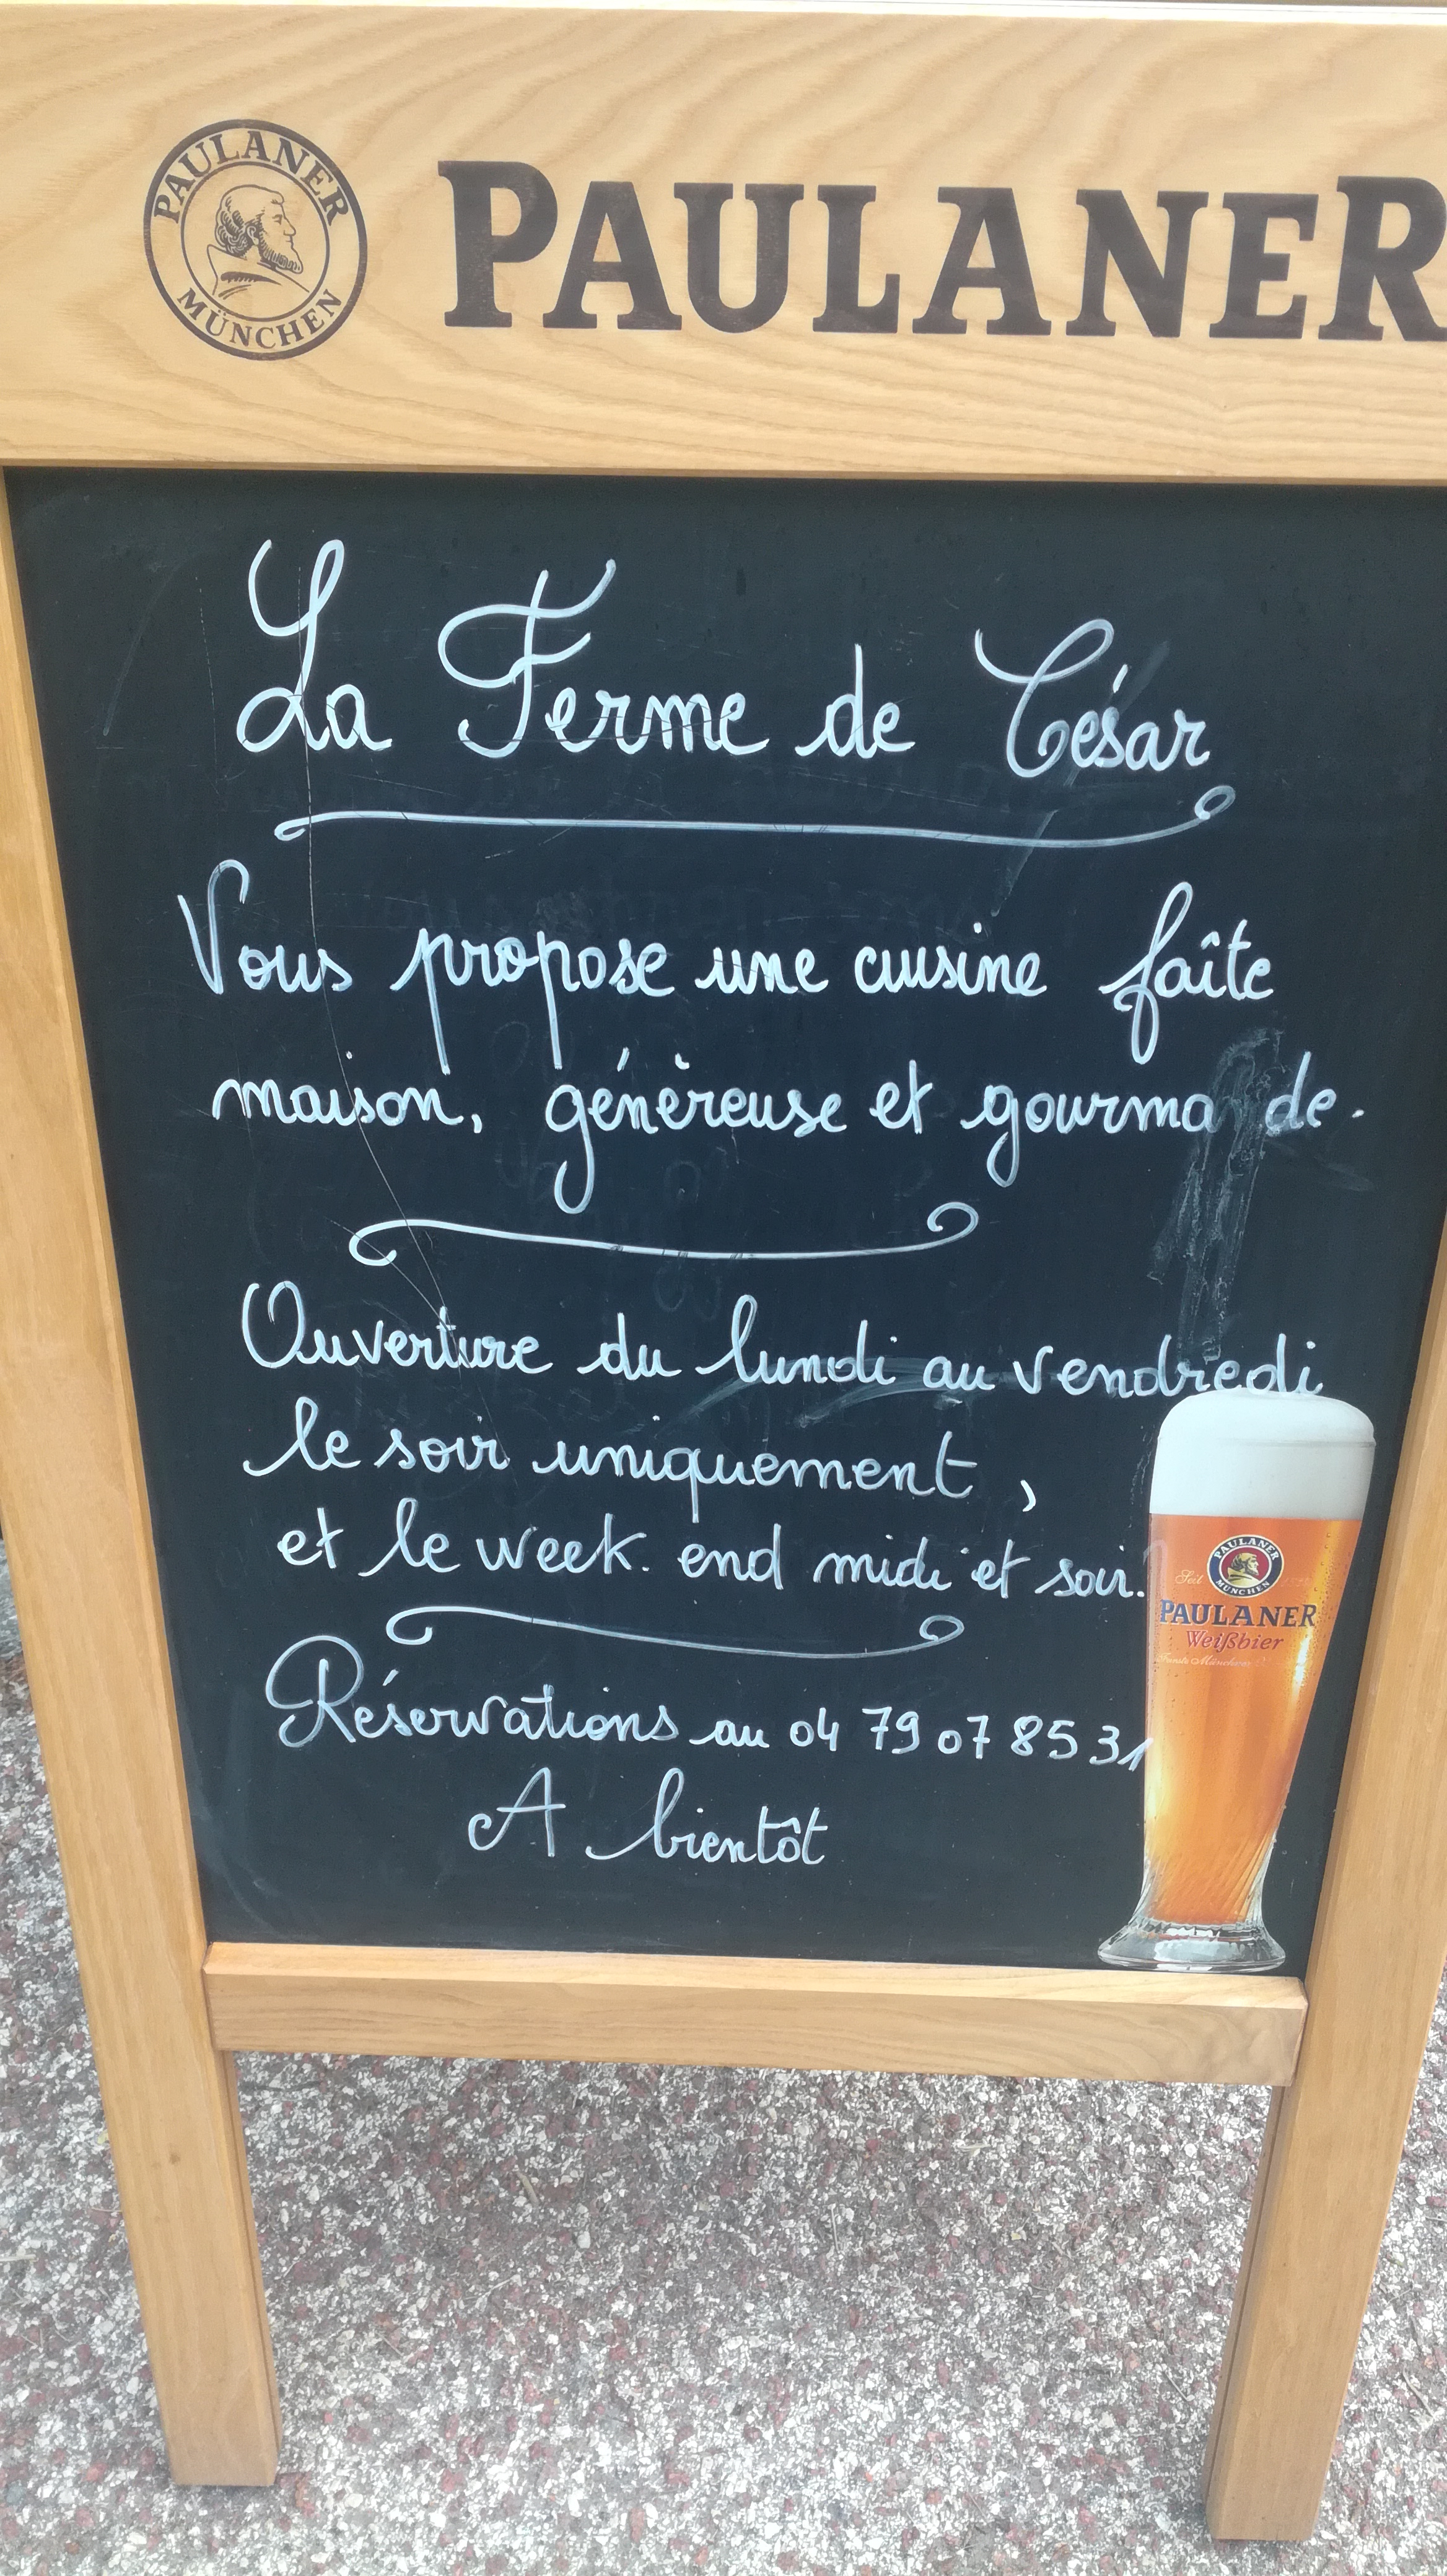 PAULANER
MÜNCHEN
PAULANER
La Ferme de César
Vous propose une cuisine faîte
maison, généreuse et gourma de.
Ouverture du lundi au vendredi
le soir uniquement,
et le week-end midi et soir.
Réservations au 04 79 07 85 31
A bientôt
PAULANER
MÜNCHEN
Seit
PAULANER
Weißbier